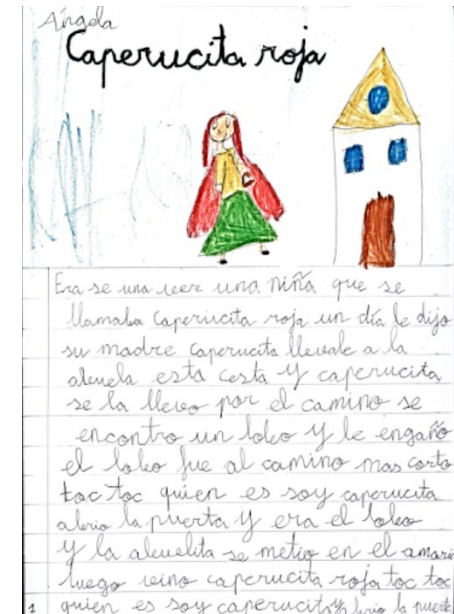 Ángela
Caperucita roja
Era se una veez una niña que se
llamaba caperucita roja un día le dijo
su madre caperucita llevale a la
abuela esta cesta y caperucita
se la llevo por el camino se
encontro un lobo y le engaño
el lobo fue al camino mas corto
toc toc quien es soy caperucita
abrio la puerta y era el lobo
y la abuelita se metio en el amari
luego vino caperucita roja toc toc
1 quien es soy caperucita y abrio la puert